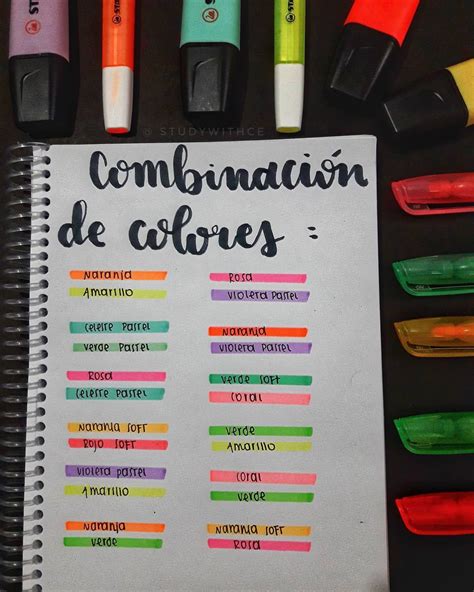 STA
STA
@STUDYWITHCE
Combinación
de colores :
Naranja
Amarillo
Celeste pastel
Verde pastel
Rosa
Celeste pastel
Naranja soft
Rojo soft
Violeta pastel
Amarillo
Naranja
Verde
Rosa
Violeta pastel
Naranja
Violeta pastel
Verde soft
Coral
Verde
Amarillo
Coral
Verde
Naranja soft
Rosa